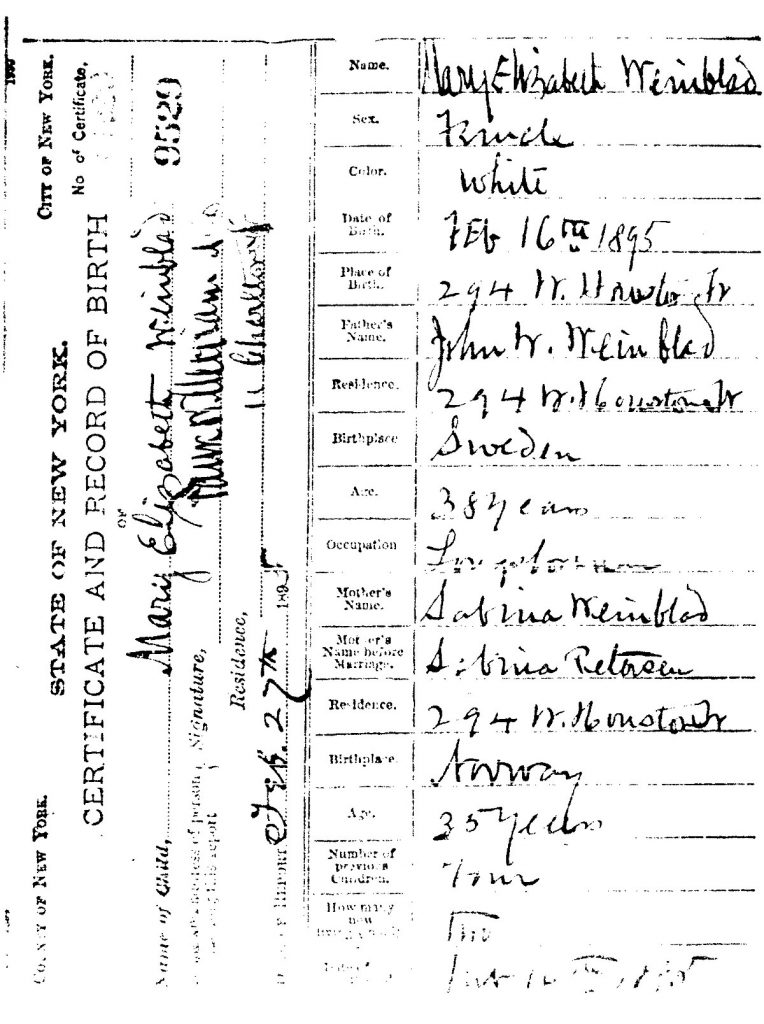 CITY OF NEW YORK.
No of Certificate,
9529
STATE OF NEW YORK.
CERTIFICATE AND RECORD OF BIRTH
OF
COUNTY OF NEW YORK.
Name of Child, Mary Elizabeth Weinblad
Signature,
this report
Residence, 11 Charlton
OF REPORT Feb. 27th 1895
Name. Mary Elizabeth Weinblad
Sex. Female
Color. White
Date of Birth. Feb 16th 1895
Place of Birth. 294 W. Houston St
Father's Name. John W. Weinblad
Residence. 294 W. Houston St
Birthplace Sweden
Age. 38 years
Occupation Longshoreman
Mother's Name. Sabina Weinblad
Mother's Name before Marriage. Sabina Petersen
Residence. 294 W. Houston St
Birthplace. Norway
Age. 35 years
Number of previous Children. Four
How many now